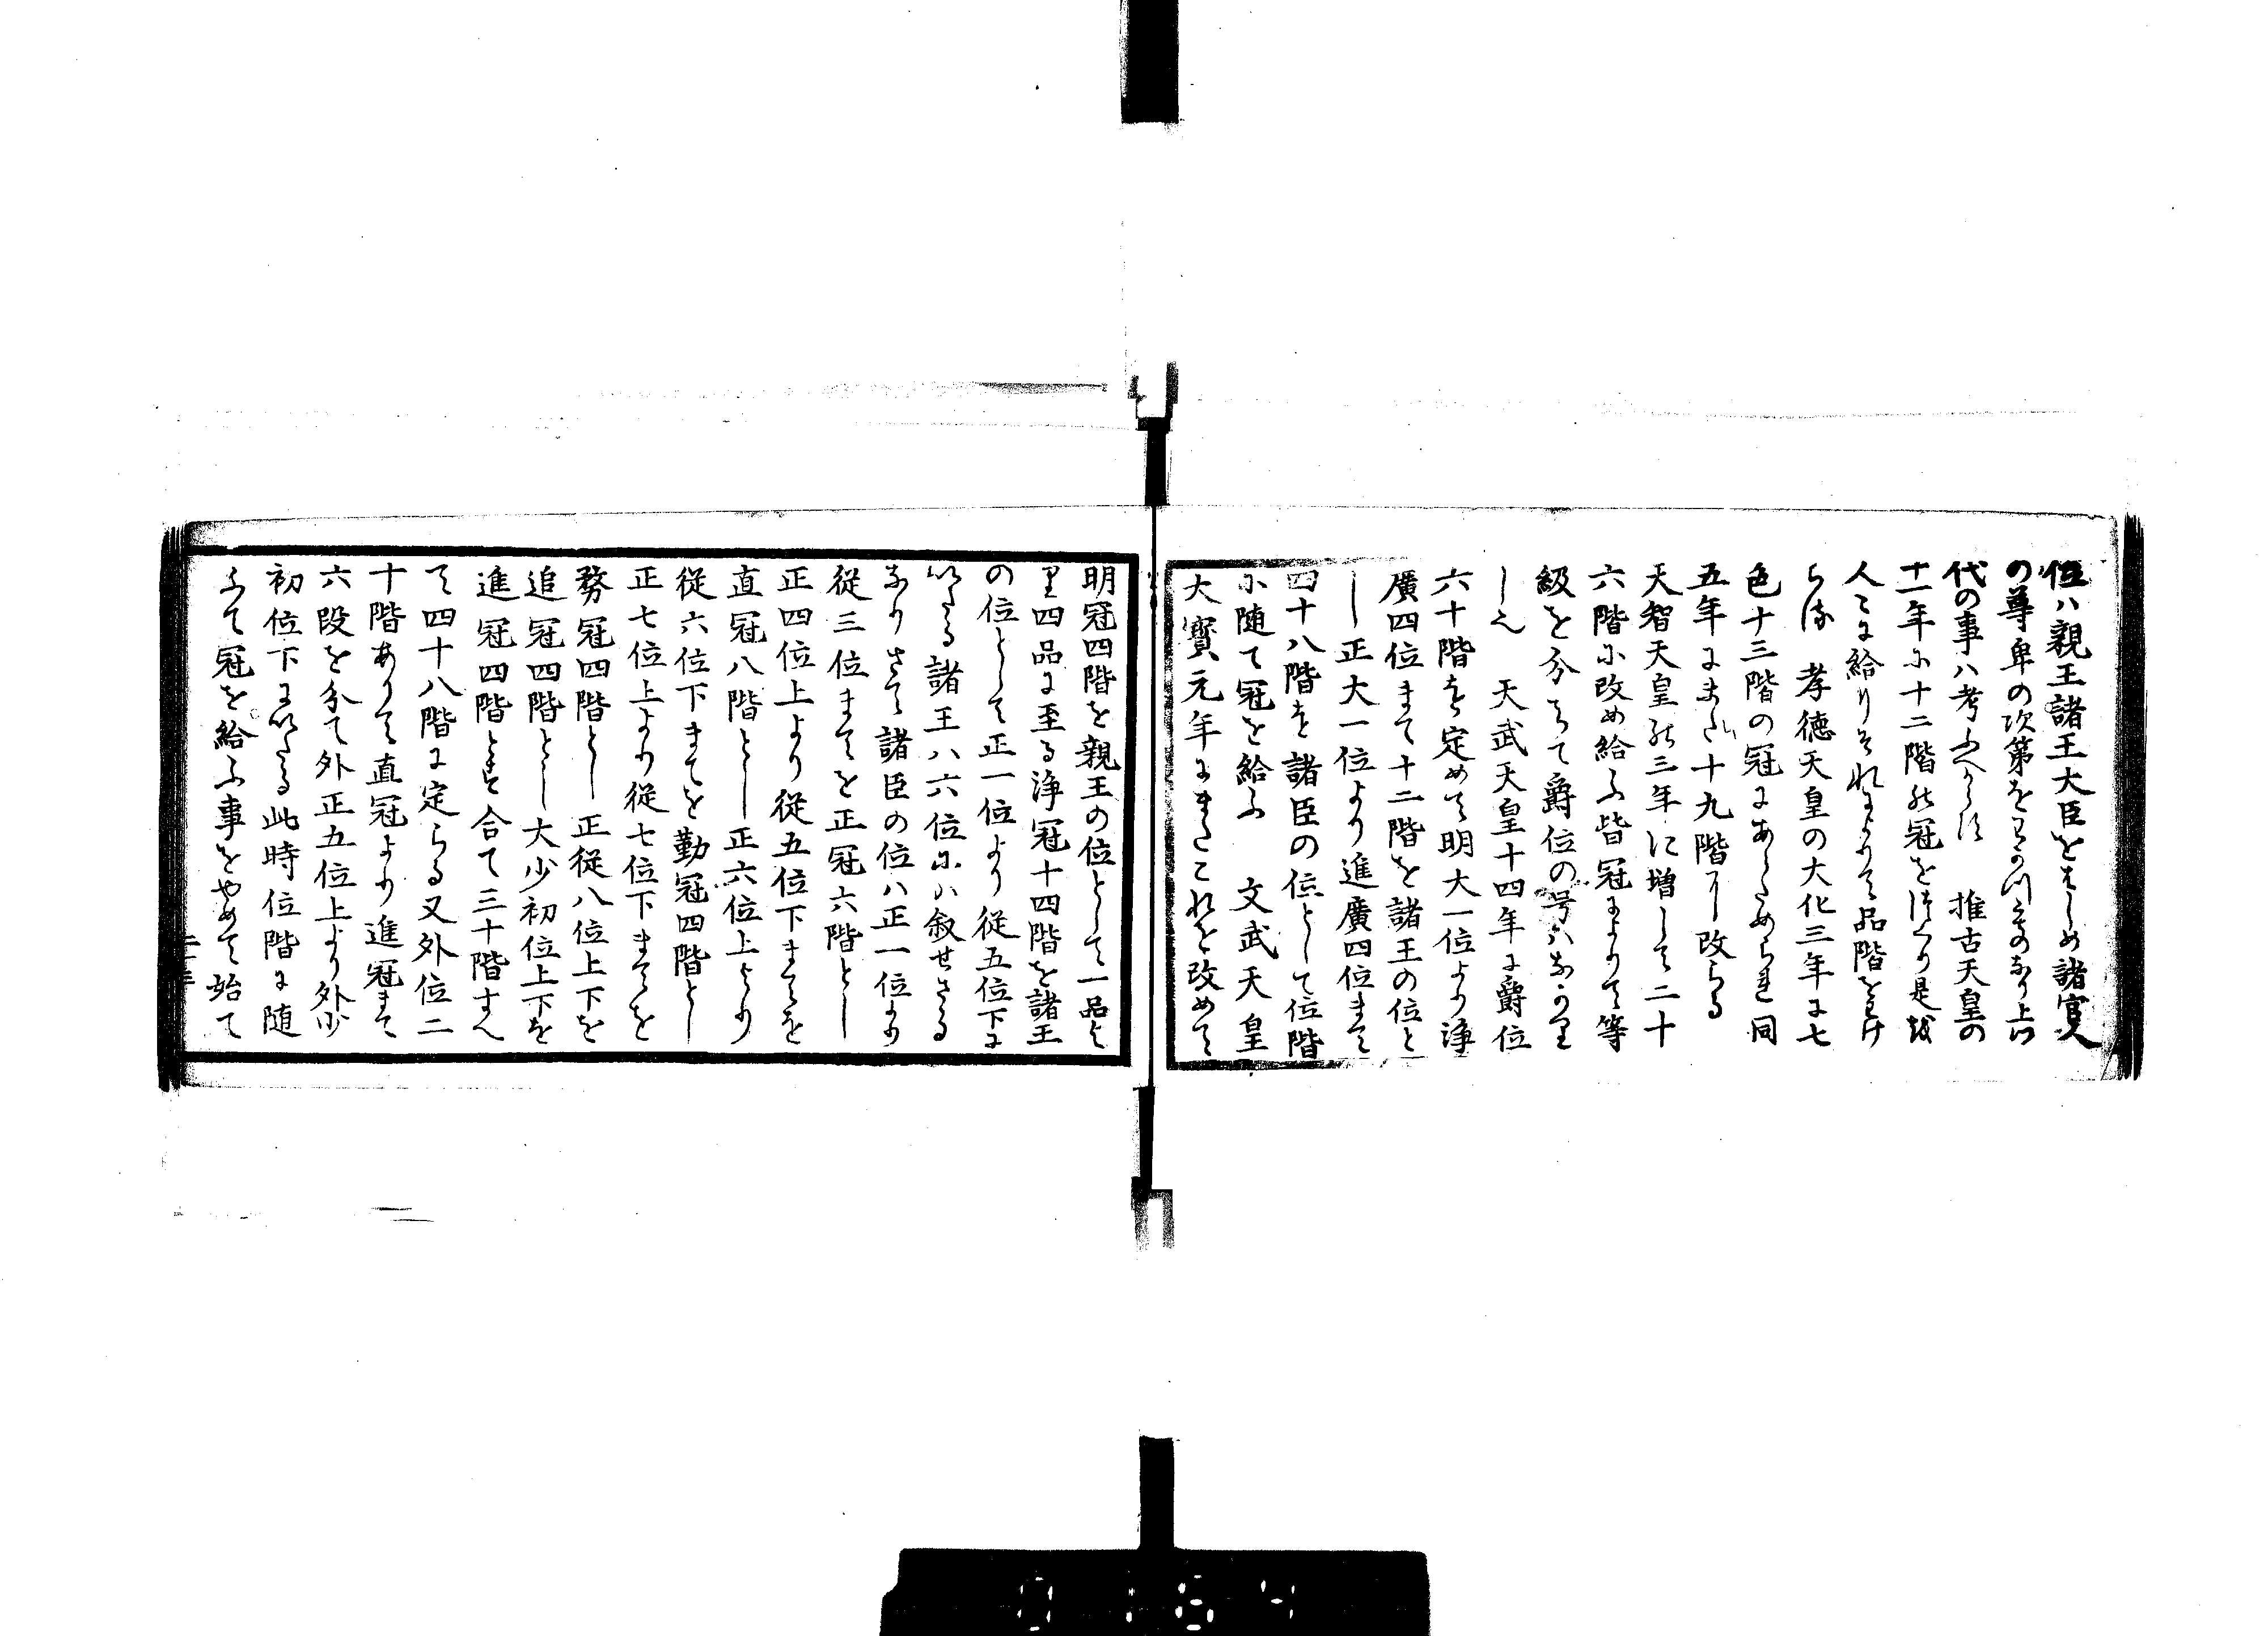 位ハ親王諸王大臣をはしめ諸官人
の尊卑の次第をわかつものなり上
代の事ハ考ふへからす　推古天皇の
十一年に十二階の冠をつくり是を
人々に給りそれによりて品階をわけ
らる　孝徳天皇の大化三年に七
色十三階の冠にあらためられ同
五年にまた十九階に改らる
天智天皇の三年に増して二十
六階に改め給ふ皆冠によりて等
級を分ちて爵位の号ハなかり
し也　天武天皇十四年に爵位
六十階を定めて明大一位より浄
廣四位まて十二階を諸王の位と
し正大一位より進廣四位まて
四十八階を諸臣の位として位階
に随て冠を給ふ　文武天皇
大寳元年にまたこれを改めて
明冠四階を親王の位として一品よ
り四品に至る浄冠十四階を諸王
の位として正一位より従五位下に
いたる諸王ハ六位にハ叙せさる
なりさて諸臣の位ハ正一位より
従三位まてを正冠六階とし
正四位上より従五位下まてを
直冠八階とし正六位上より
従六位下まてを勤冠四階とし
正七位上より従七位下まてを
務冠四階とし正従八位上下を
追冠四階とし大少初位上下を
進冠四階とす合て三十階すへ
て四十八階に定らる又外位二
十階ありて直冠より進冠まて
六段を分て外正五位上より外少
初位下にいたる此時位階に随
ふて冠を給ふ事をやめて始て
0164